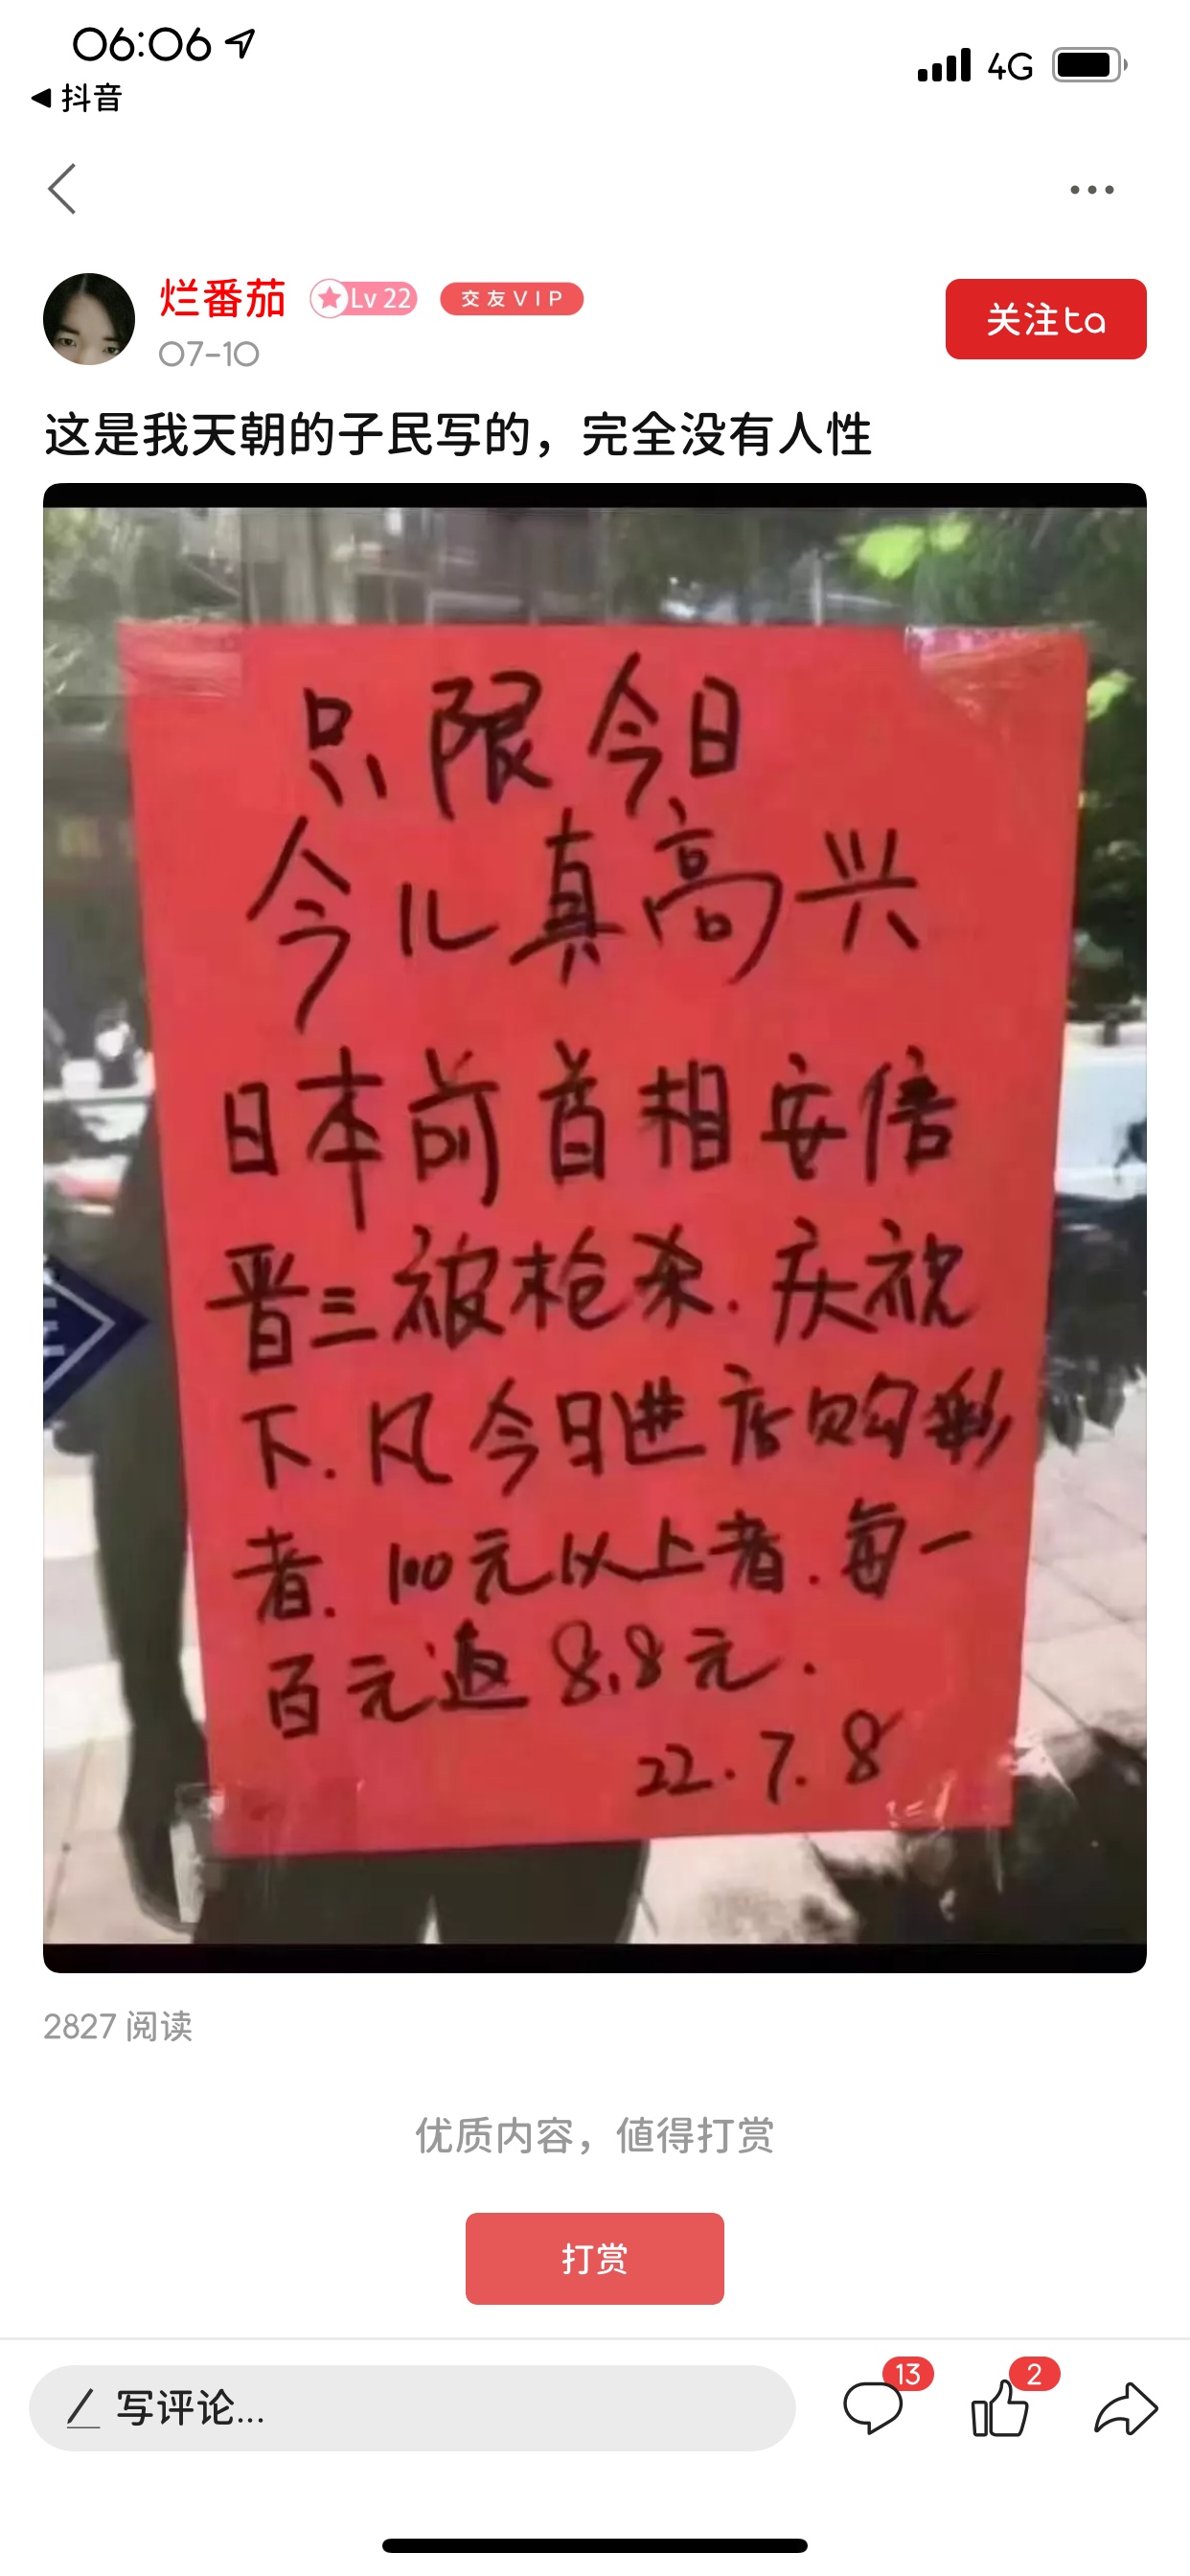 06:06
4G
抖音
烂番茄
Lv 22
交友VIP
07-10
关注ta
这是我天朝的子民写的，完全没有人性
只限今日
今儿真高兴
日本前首相安倍
晋三被枪杀.庆祝
下.凡今日进店购彩
者.100元以上者.每一
百元返8.8元.
22.7.8
2827 阅读
优质内容，值得打赏
打赏
写评论...
13
2